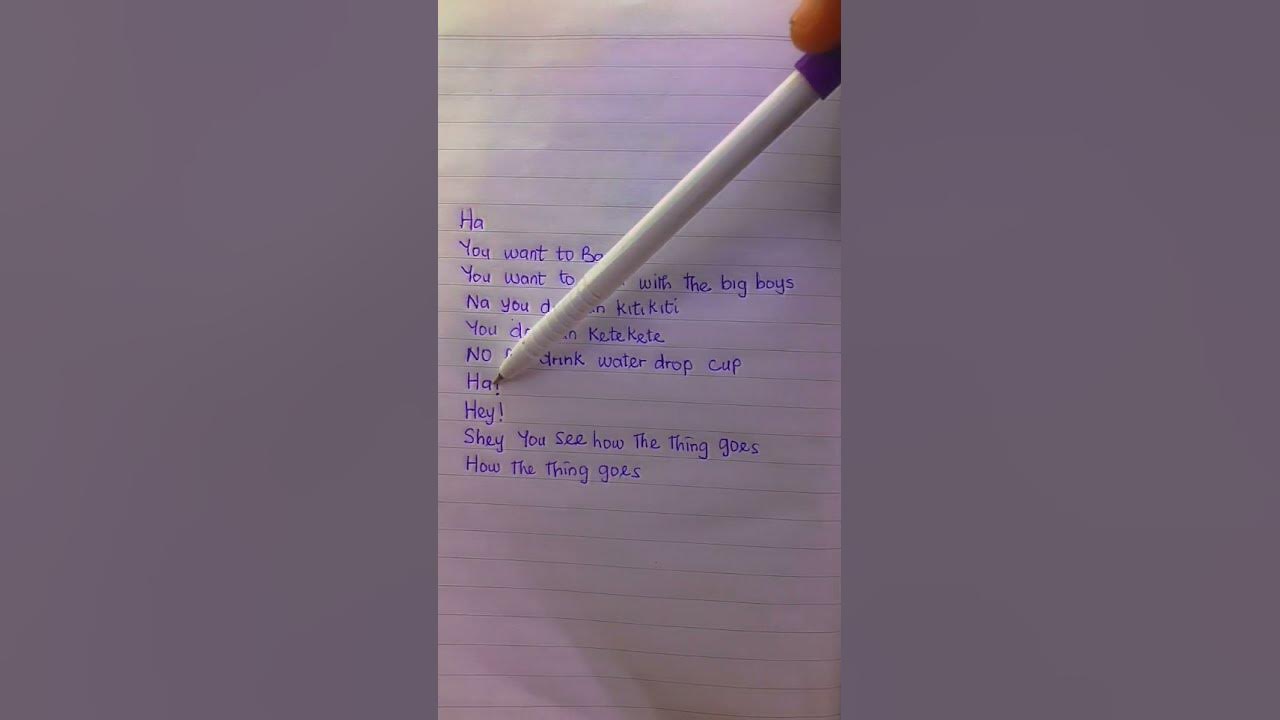 Ha
You want to
You want to with the big boys
Na you kitikiti
You KeteKete
NO drink water drop cup
Ha!
Hey!
Shey You see how The Thing goes
How the thing goes